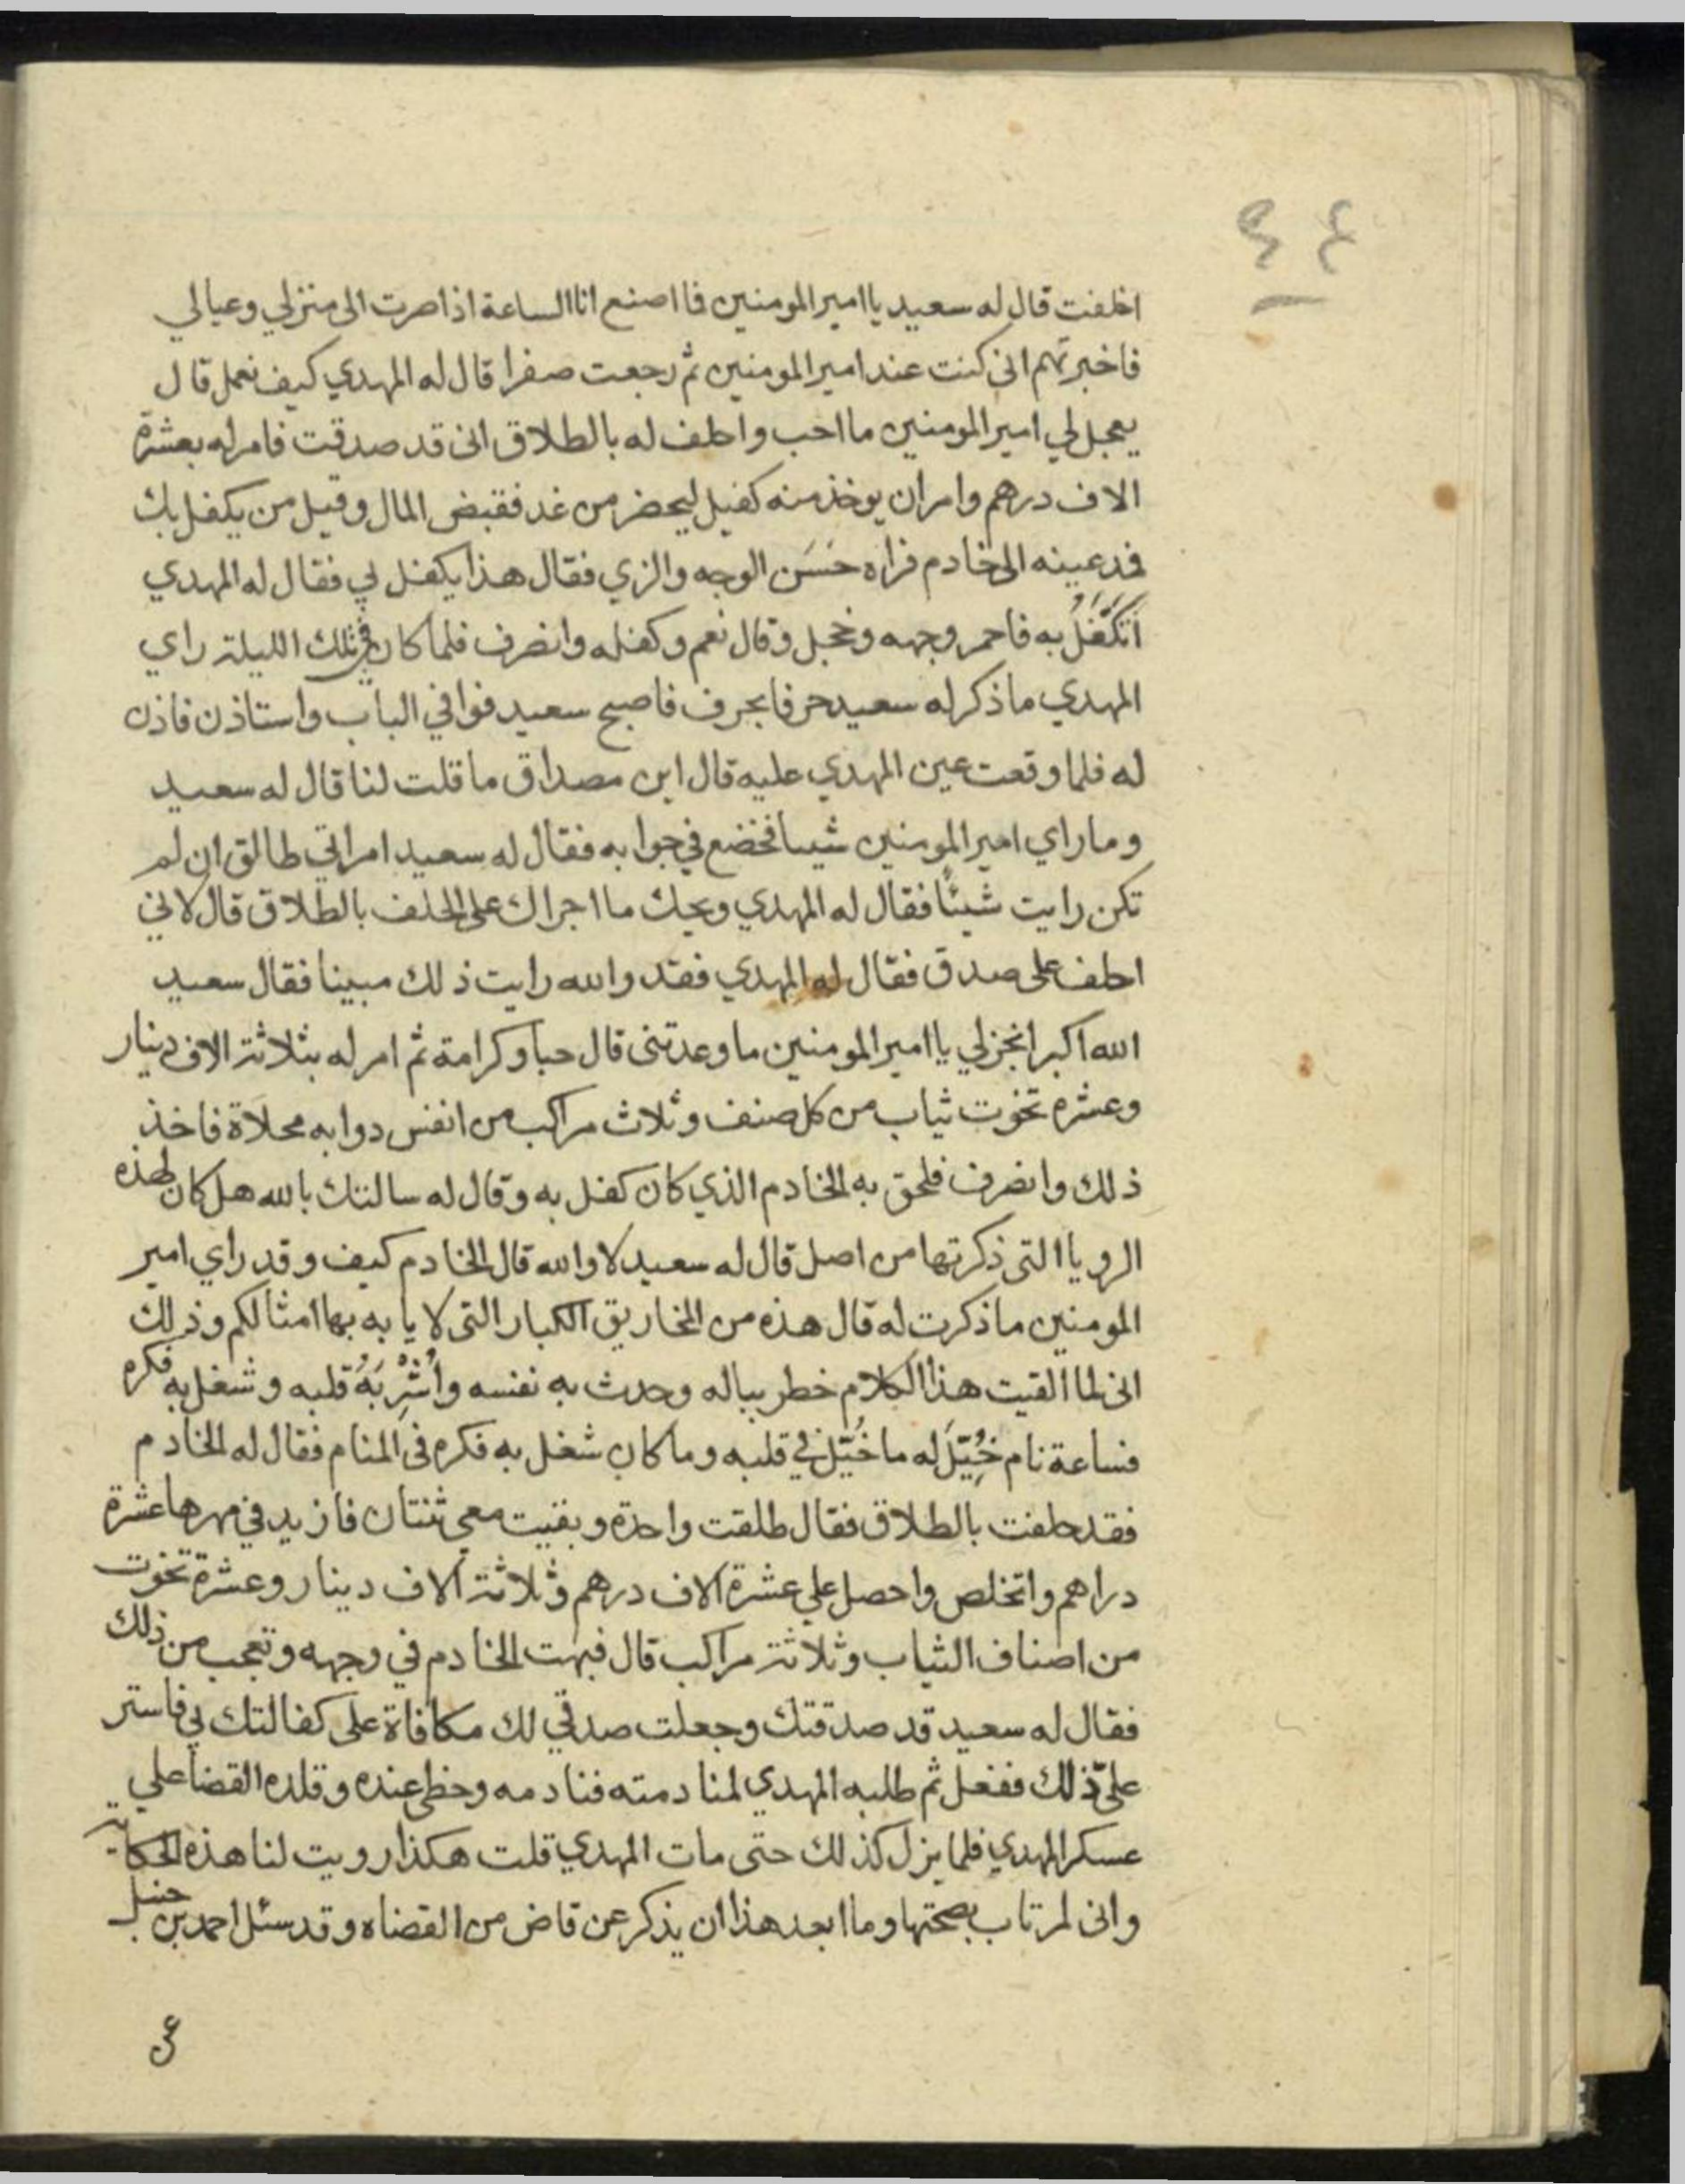 ٤٤
اخلفت قال له سعيد يا امير المومنين فما اصنع انا الساعة اذا صرت الى منزلي وعيالي
فاخبرتهم اني كنت عند امير المومنين ثم رجعت صفرا قال له المهدي كيف نعمل قال
يعجل لي امير المومنين ما احب واحلف له بالطلاق انى قد صدقت فامر له بعشرة
الاف درهم وامر ان يوخذ منه كفيل ليحضر من غد فقبض المال وقيل من يكفل بك
فمد عينه الى خادم فراه حَسَن الوجه والزي فقال هذا يكفل بي فقال له المهدي
أَتَكَفَّلُ به فاحمر وجهه وخجل وقال نعم وكفله وانصرف فلما كان في تلك الليلة راي
المهدي ما ذكر له سعيد حرفا بحرف فاصبح سعيد فوافي الباب واستاذن فاذن
له فلما وقعت عين المهدي عليه قال اين مصداق ما قلت لنا قال له سعيد
وما راي امير المومنين شيا فخضع في جوابه فقال له سعيد امراتي طالق ان لم
تكن رايت شيئًا فقال له المهدي ويحك ما اجراك على الحلف بالطلاق قال لاني
احلف على صدق فقال له المهدي فقد والله رايت ذلك مبينا فقال سعيد
الله اكبر انجز لي يا امير المومنين ما وعدتنى قال حبا وكرامة ثم امر له بثلاثة الاف دينار
وعشره تخوت ثياب من كل صنف وثلاث مراكب من انفس دوابه محلاة فاخذ
ذلك وانصرف فلحق به الخادم الذي كان كفل به وقال له سالتك بالله هل كان لهذه
الرويا التى ذكرتها من اصل قال له سعيد لا والله قال الخادم كيف وقد راي امير
المومنين ما ذكرت له قال هذه من المخاريق الكبار التى لا يابه بها امثالكم وذلك
انى لما القيت هذا الكلام خطر بباله وحدث به نفسه وأُشْرِبَهُ قلبه وشغل به فكره
فساعة نام خُيِّلَ له ما خُيِّل في قلبه وما كان شغل به فكره فى المنام فقال له الخادم
فقد حلفت بالطلاق فقال طلقت واحدة وبقيت معي ثنتان فازيد في مهرها عشرة
دراهم واتخلص واحصل علي عشرة الاف درهم وثلاثة آلاف دينار وعشرة تخوت
من اصناف الثياب وثلاثة مراكب قال فبهت الخادم في وجهه وتعجب من ذلك
فقال له سعيد قد صدقتك وجعلت صدقي لك مكافاة على كفالتك بي فاستر
علىّ ذلك ففعل ثم طلبه المهدي لمنادمته فنادمه وحظى عنده وقلده القضا علي
عسكر المهدي فلم يزل كذلك حتى مات المهدي قلت هكذا رويت لنا هذه الحكاية
وانى لمرتاب بصحتها وما ابعد هذا ان يذكر عن قاض من القضاه وقد سئل احمد بن حنبل